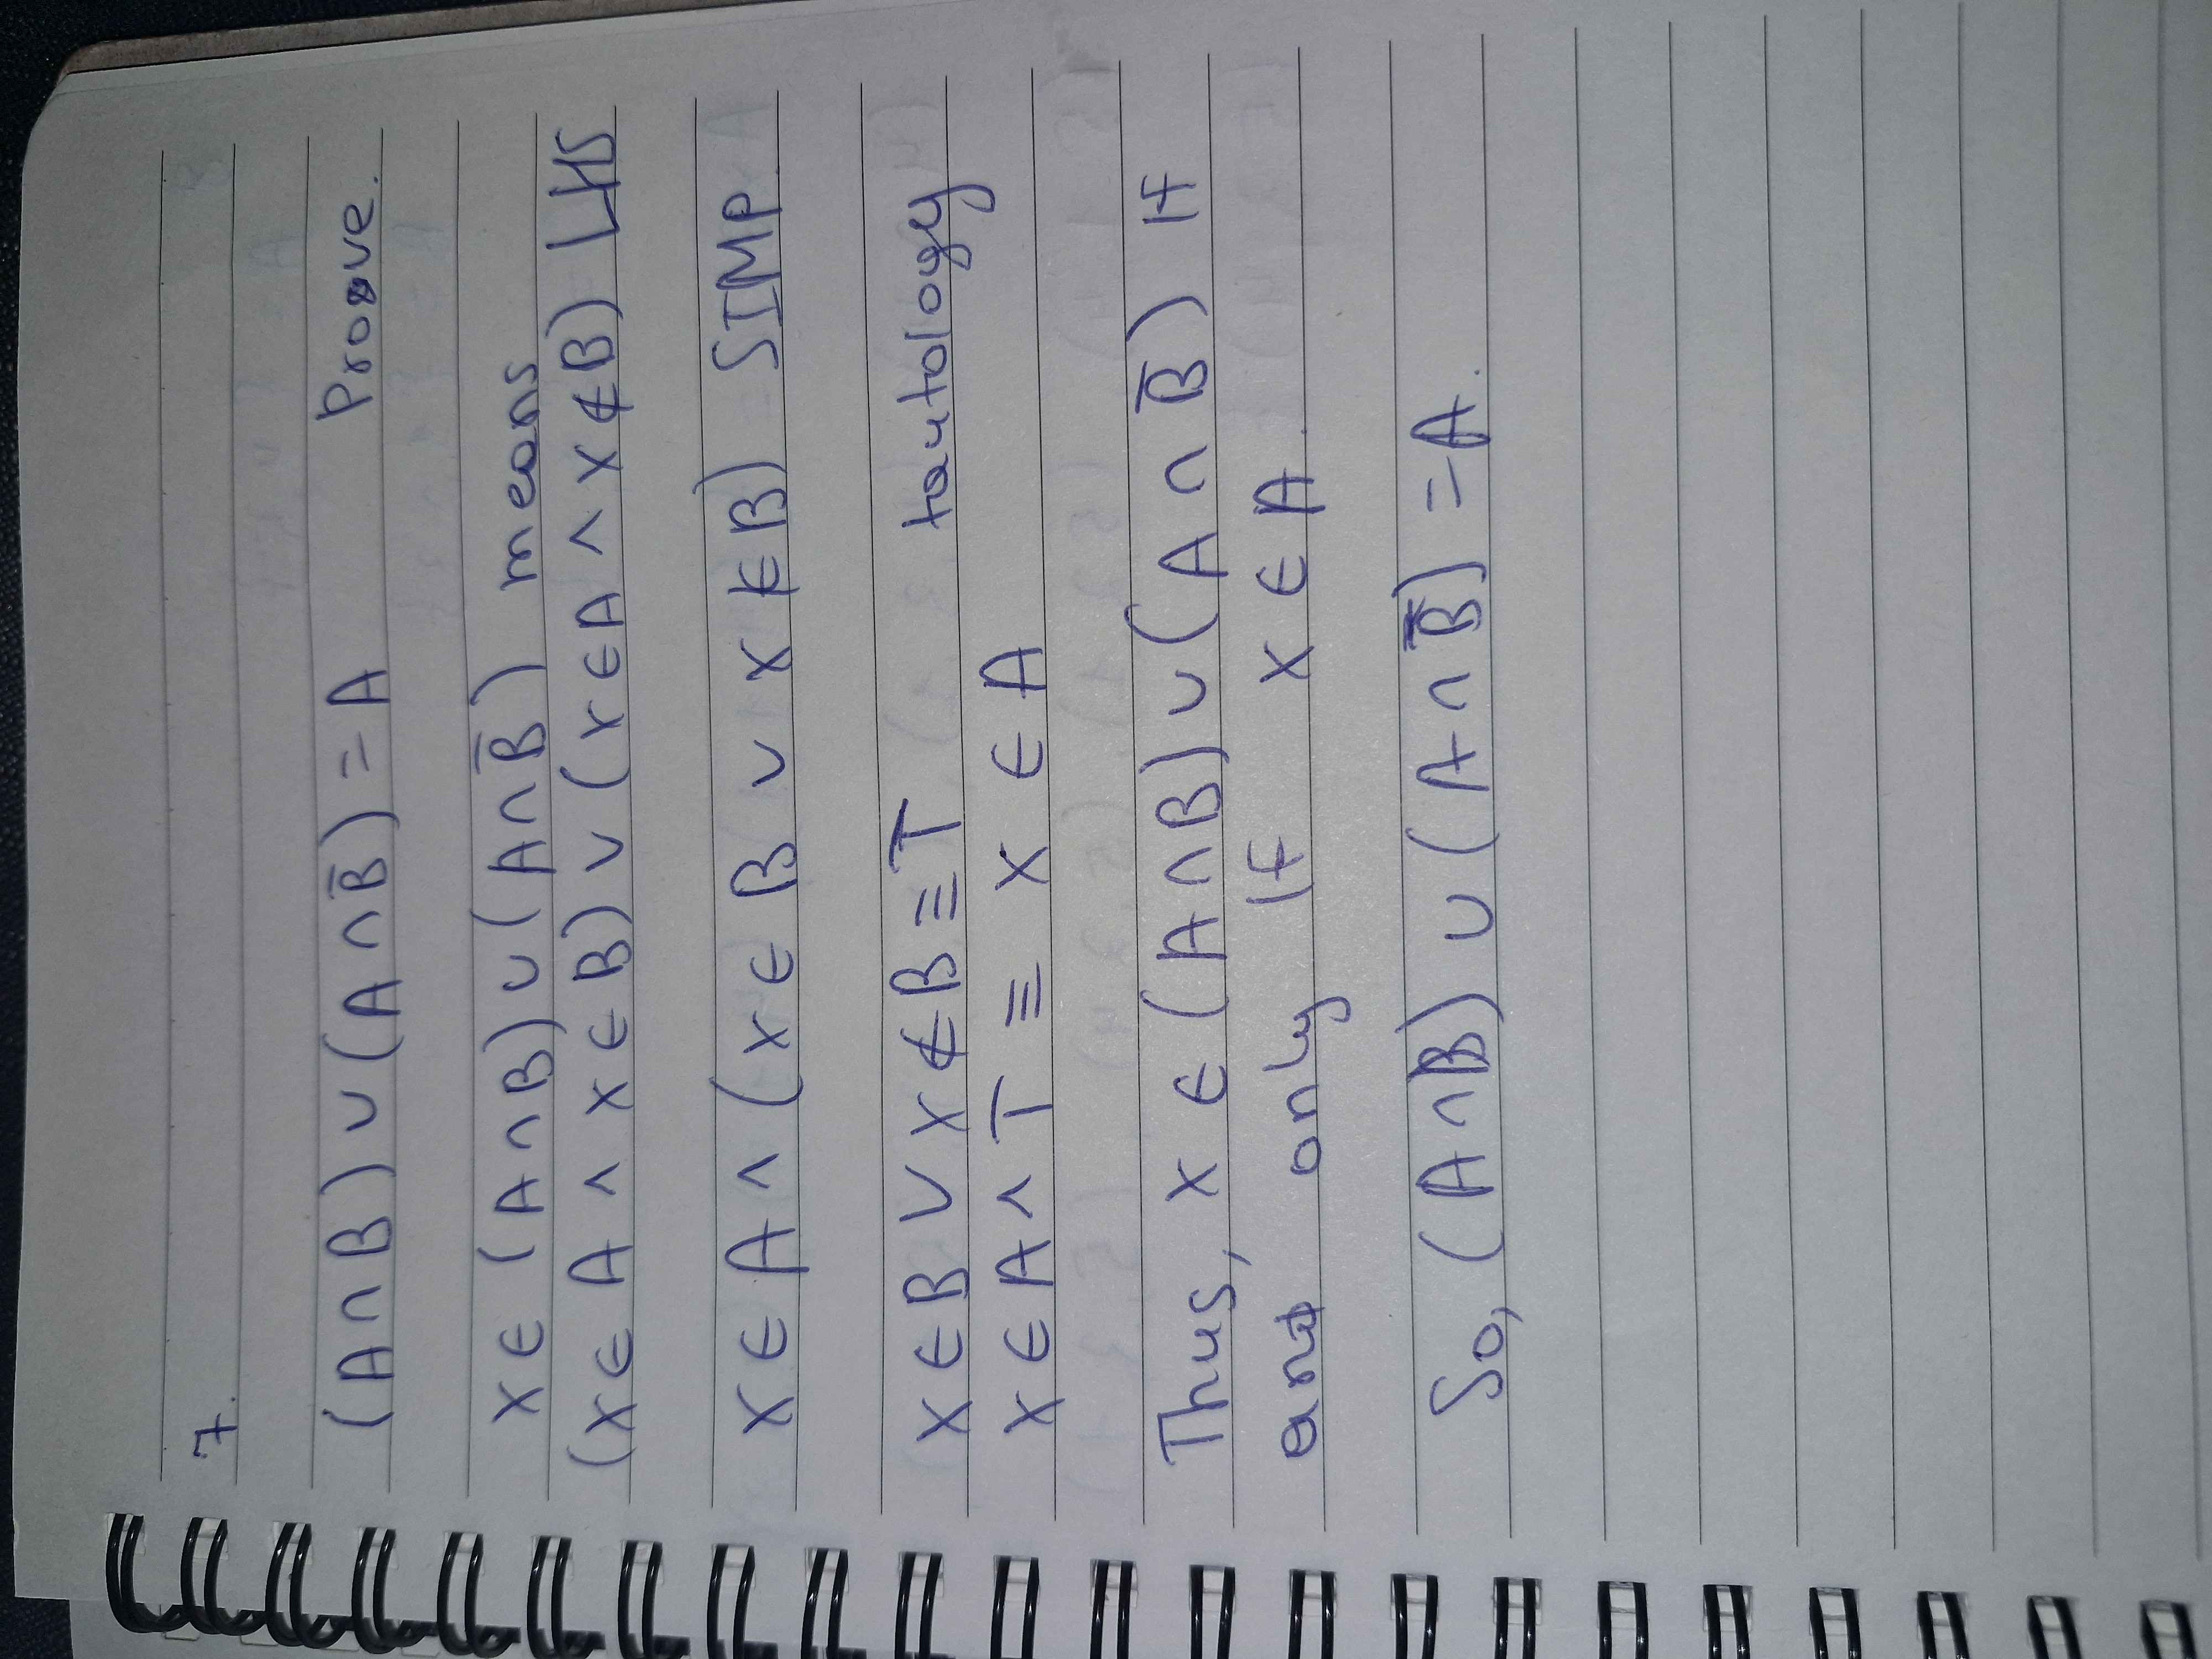 7.
(A∩B)∪(A∩B̅)=A Prove.
x∈ (A∩B)∪(A∩B̅) means
(x∈A ∧ x∈B) ∨ (x∈A ∧ x∉B) LHS
x∈A ∧ (x∈B ∨ x∉B) SIMP
x∈B ∨ x∉B ≡ T tautology
x∈A ∧ T ≡ x∈A
Thus, x∈(A∩B)∪(A∩B̅) If
and only If x∈A.
So, (A∩B)∪(A∩B̅)=A.